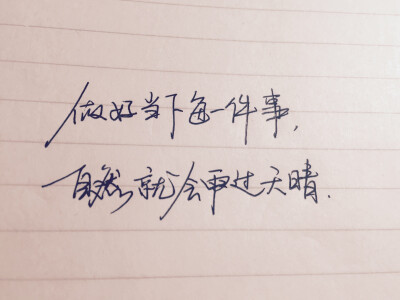 做好当下每一件事，
自然就会雨过天晴．